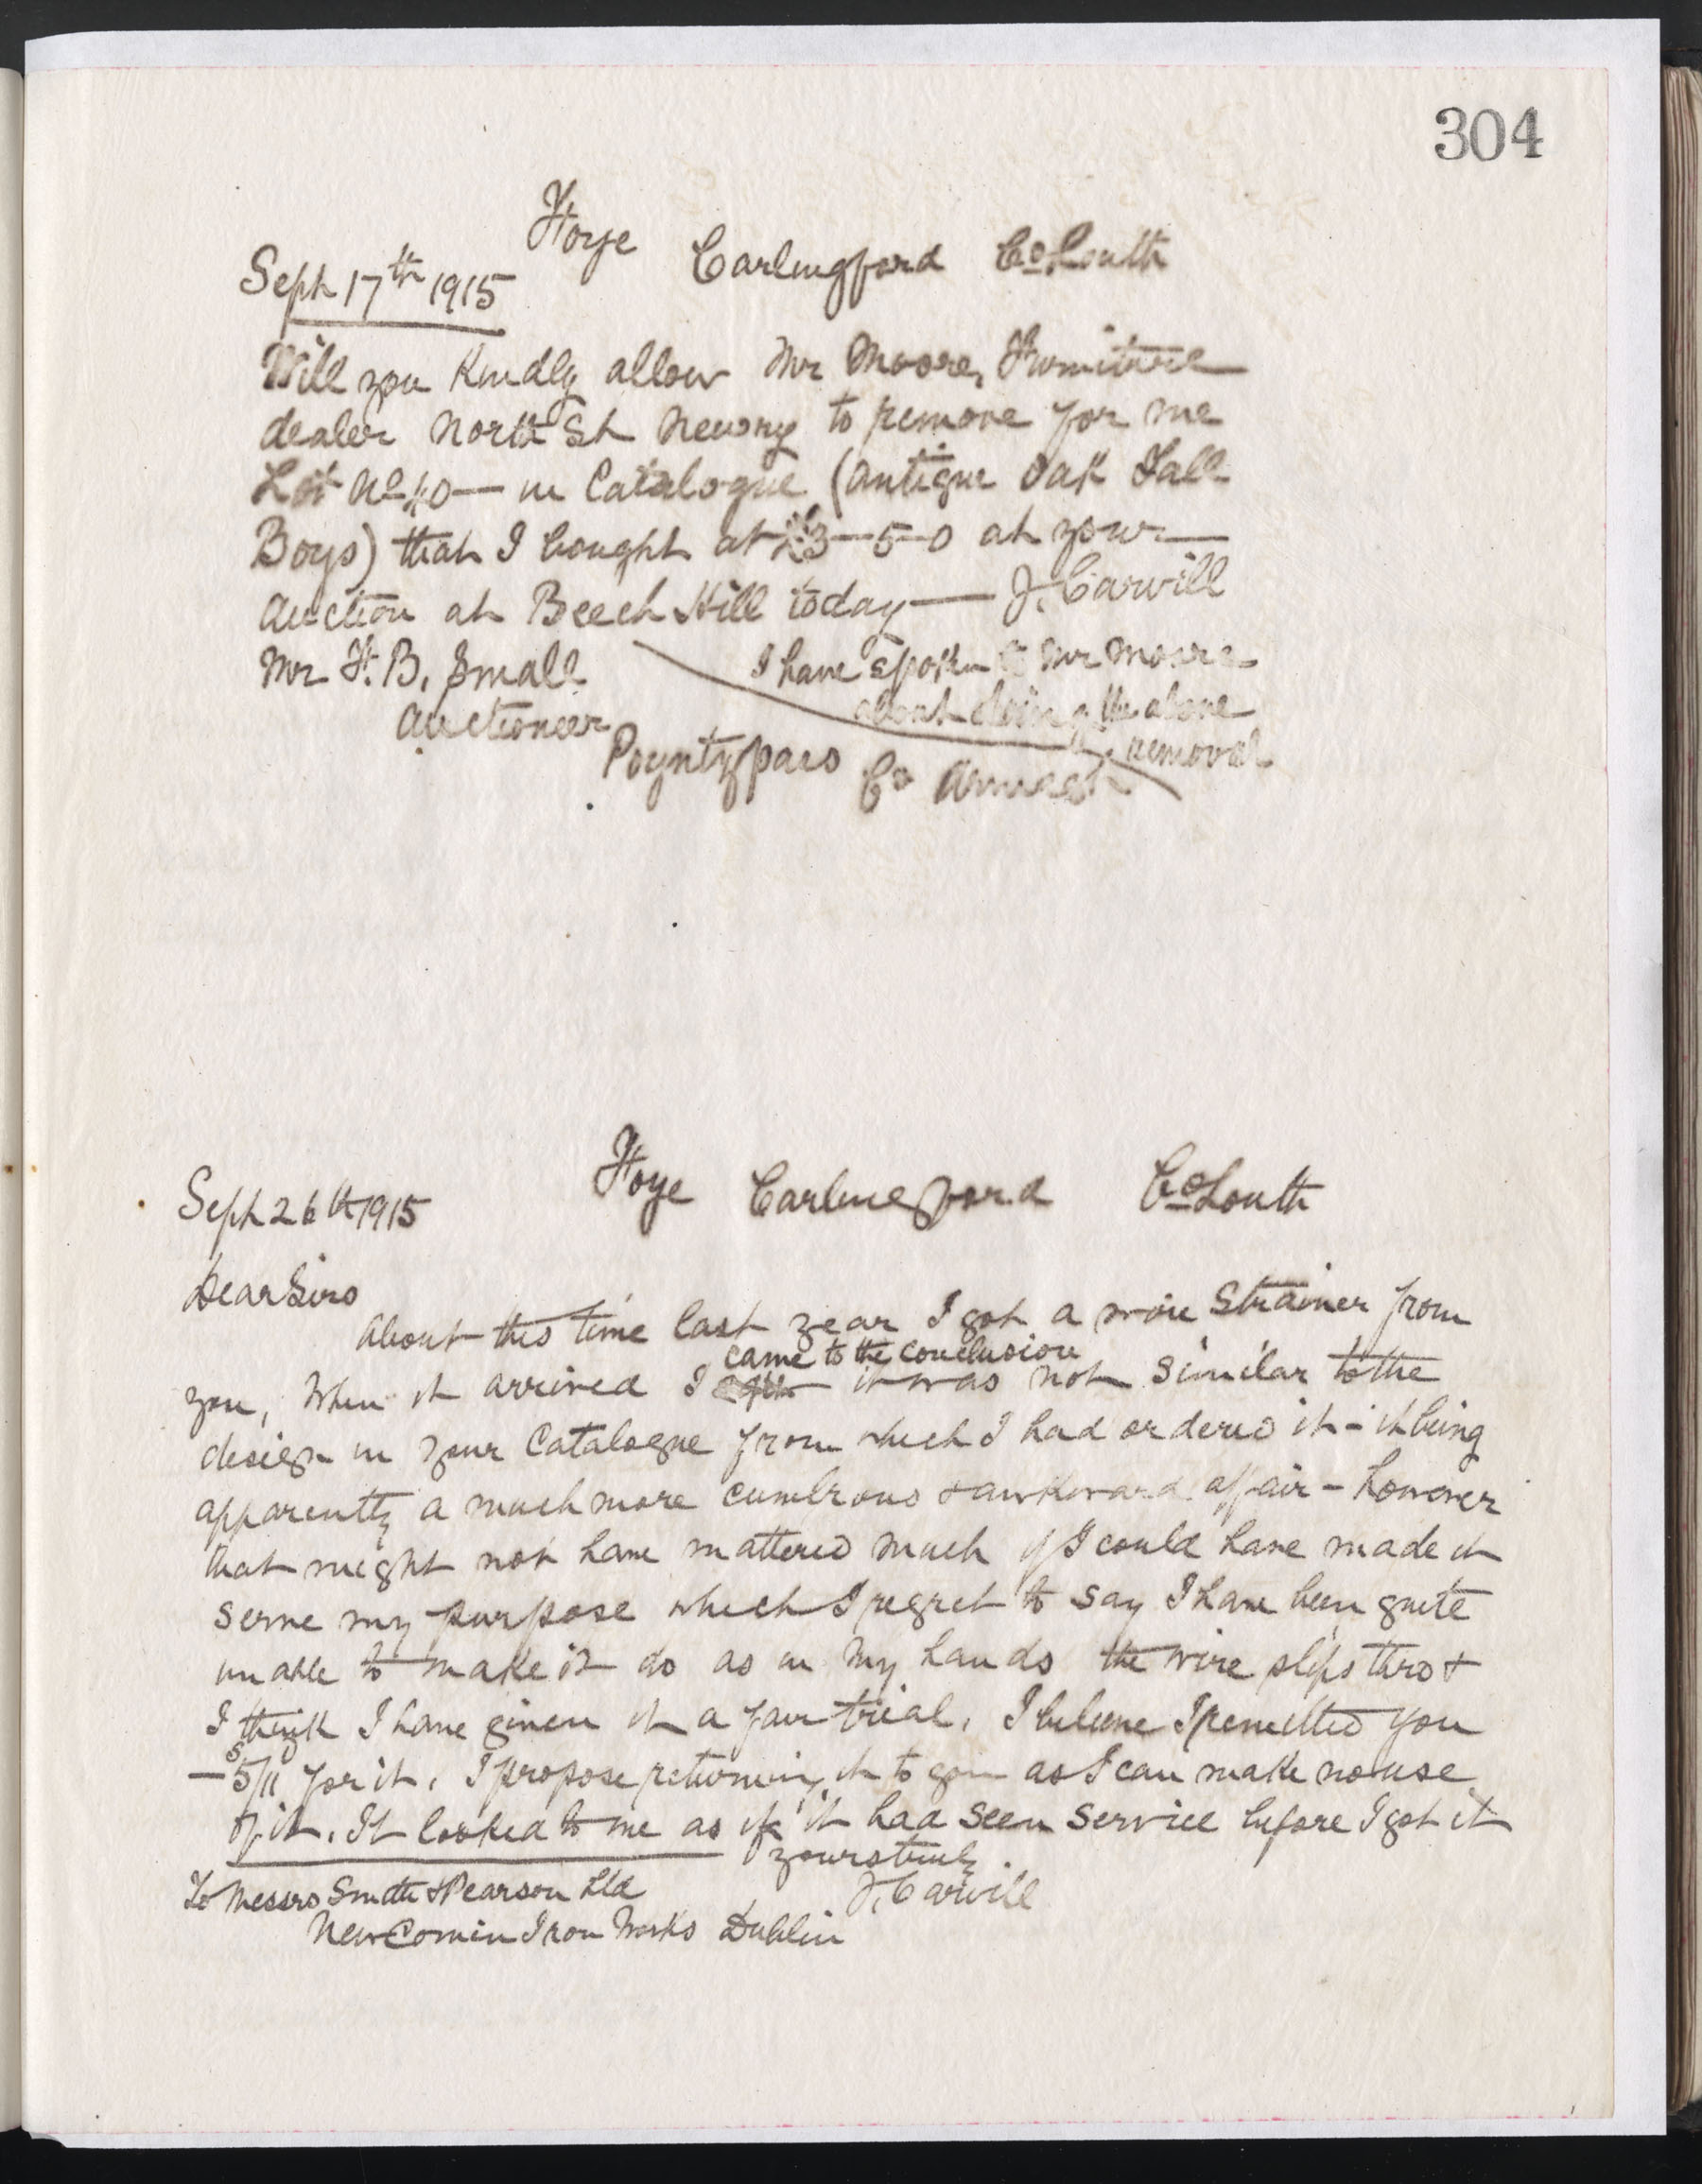 304
Foye Carlingford Co Louth
Sept 17th 1915
Will you kindly allow Mr Moore, Furniture
dealer North St Newry to remove for me
Lot No 40 — in Catalogue (Antique Oak Tall
Boys) that I bought at £3-5-0 at your
Auction at Beech Hill today — J. Carvill
Mr H. B. Small
Auctioneer
Poyntzpass Co Armagh
I have spoken to Mr Moore
about doing the above
removal
Foye Carlingford Co Louth
Sept 26th 1915
Dear Sirs
About this time last year I got a wire Strainer from
came to the conclusion
you, When it arrived I it was not similar to the
design in your Catalogue from which I had ordered it - it being
apparently a much more cumbrous & awkward affair - however
that might not have mattered much if I could have made it
serve my purpose which I regret to say I have been quite
unable to make it do as in my hands the wire slips thro &
I think I have given it a fair trial. I believe I remitted you
— 5/11 for it. I propose returning it to you as I can make no use
of it. It looked to me as if it had seen service before I got it
yours truly
J. Carvill
To Messrs Smith & Pearson Ltd
Newcomen Iron Works Dublin